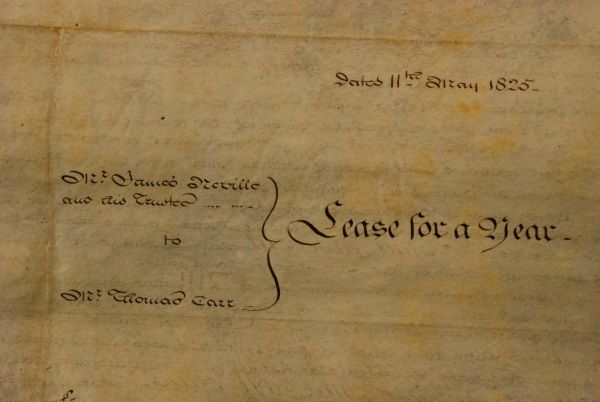 Dated 11th May 1825
Mr. James Neville
and his Trustee
to
Mr. Thomas Carr
Lease for a Year